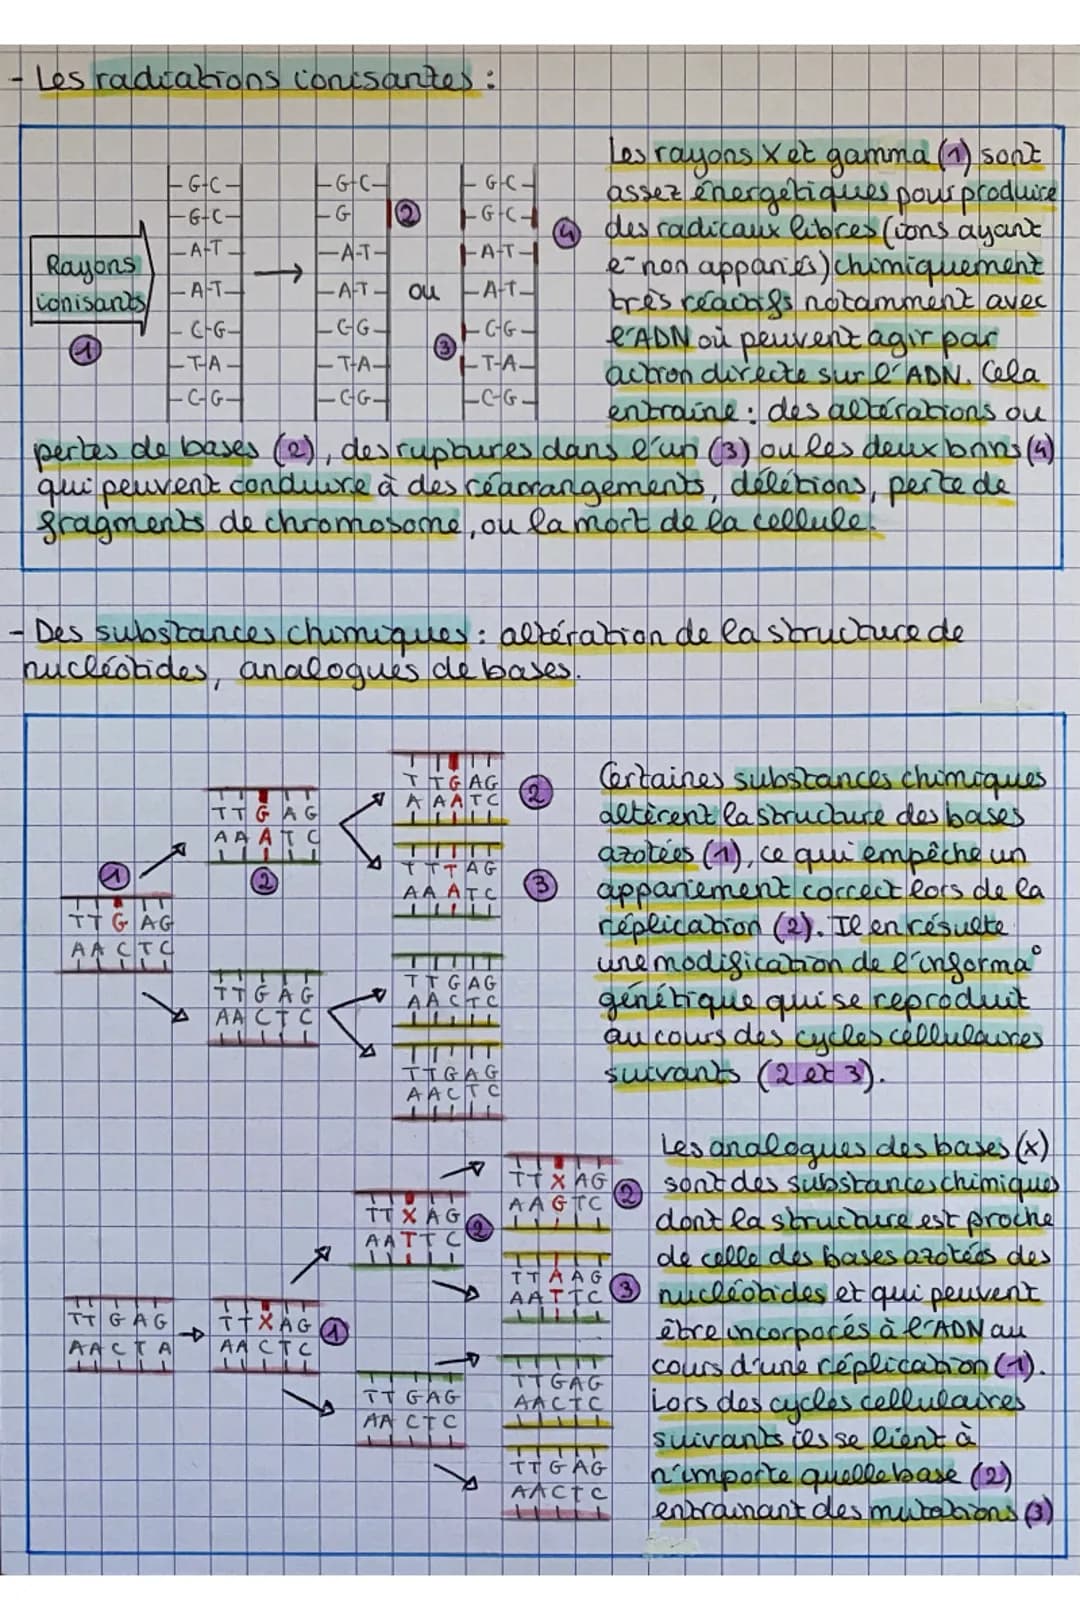 - Les radiations ionisantes :
Rayons
ionisants
1
G-C
G-C
A-T
A-T
C-G
T-A
C-G
G-C
G
A-T
A-T
C-G
T-A
C-G
2
ou
3
G-C
G-C
A-T
A-T
C-G
T-A
C-G
4
Les rayons X et gamma (1) sont
assez énergétiques pour produire
des radicaux libres (ions ayant
e- non appariés) chimiquement
très réactifs notamment avec
l'ADN où peuvent agir par
action directe sur l'ADN. Cela
entraîne : des altérations ou
pertes de bases (2), des ruptures dans l'un (3) ou les deux brins (4)
qui peuvent conduire à des réarrangements, délétions, perte de
fragments de chromosome, ou la mort de la cellule.
- Des substances chimiques : altération de la structure de
nucléotides, analogues de bases.
1
TTGAG
AACTC
TTGAG
AAATC
2
TTGAG
AACTC
TTGAG
AAATC
2
TTTAG
AAATC
3
TTGAG
AACTC
TTGAG
AACTC
Certaines substances chimiques
altèrent la structure des bases
azotées (1), ce qui empêche un
appariement correct lors de la
réplication (2). Il en résulte
une modification de l'informa°
génétique qui se reproduit
au cours des cycles cellulaires
suivants (2 et 3).
TTGAG
AACTA
TTXAG
AACTC
1
TTXAG
AATTC
2
TTGAG
AACTC
TTXAG
AAGTC
2
TTAAG
AATTC
3
TTGAG
AACTC
TTGAG
AACTC
Les analogues des bases (x)
sont des substances chimiques
dont la structure est proche
de celle des bases azotées des
nucléotides et qui peuvent
être incorporés à l'ADN au
cours d'une réplication (1).
Lors des cycles cellulaires
suivants ils se lient à
n'importe quelle base (2)
entrainant des mutations (3)